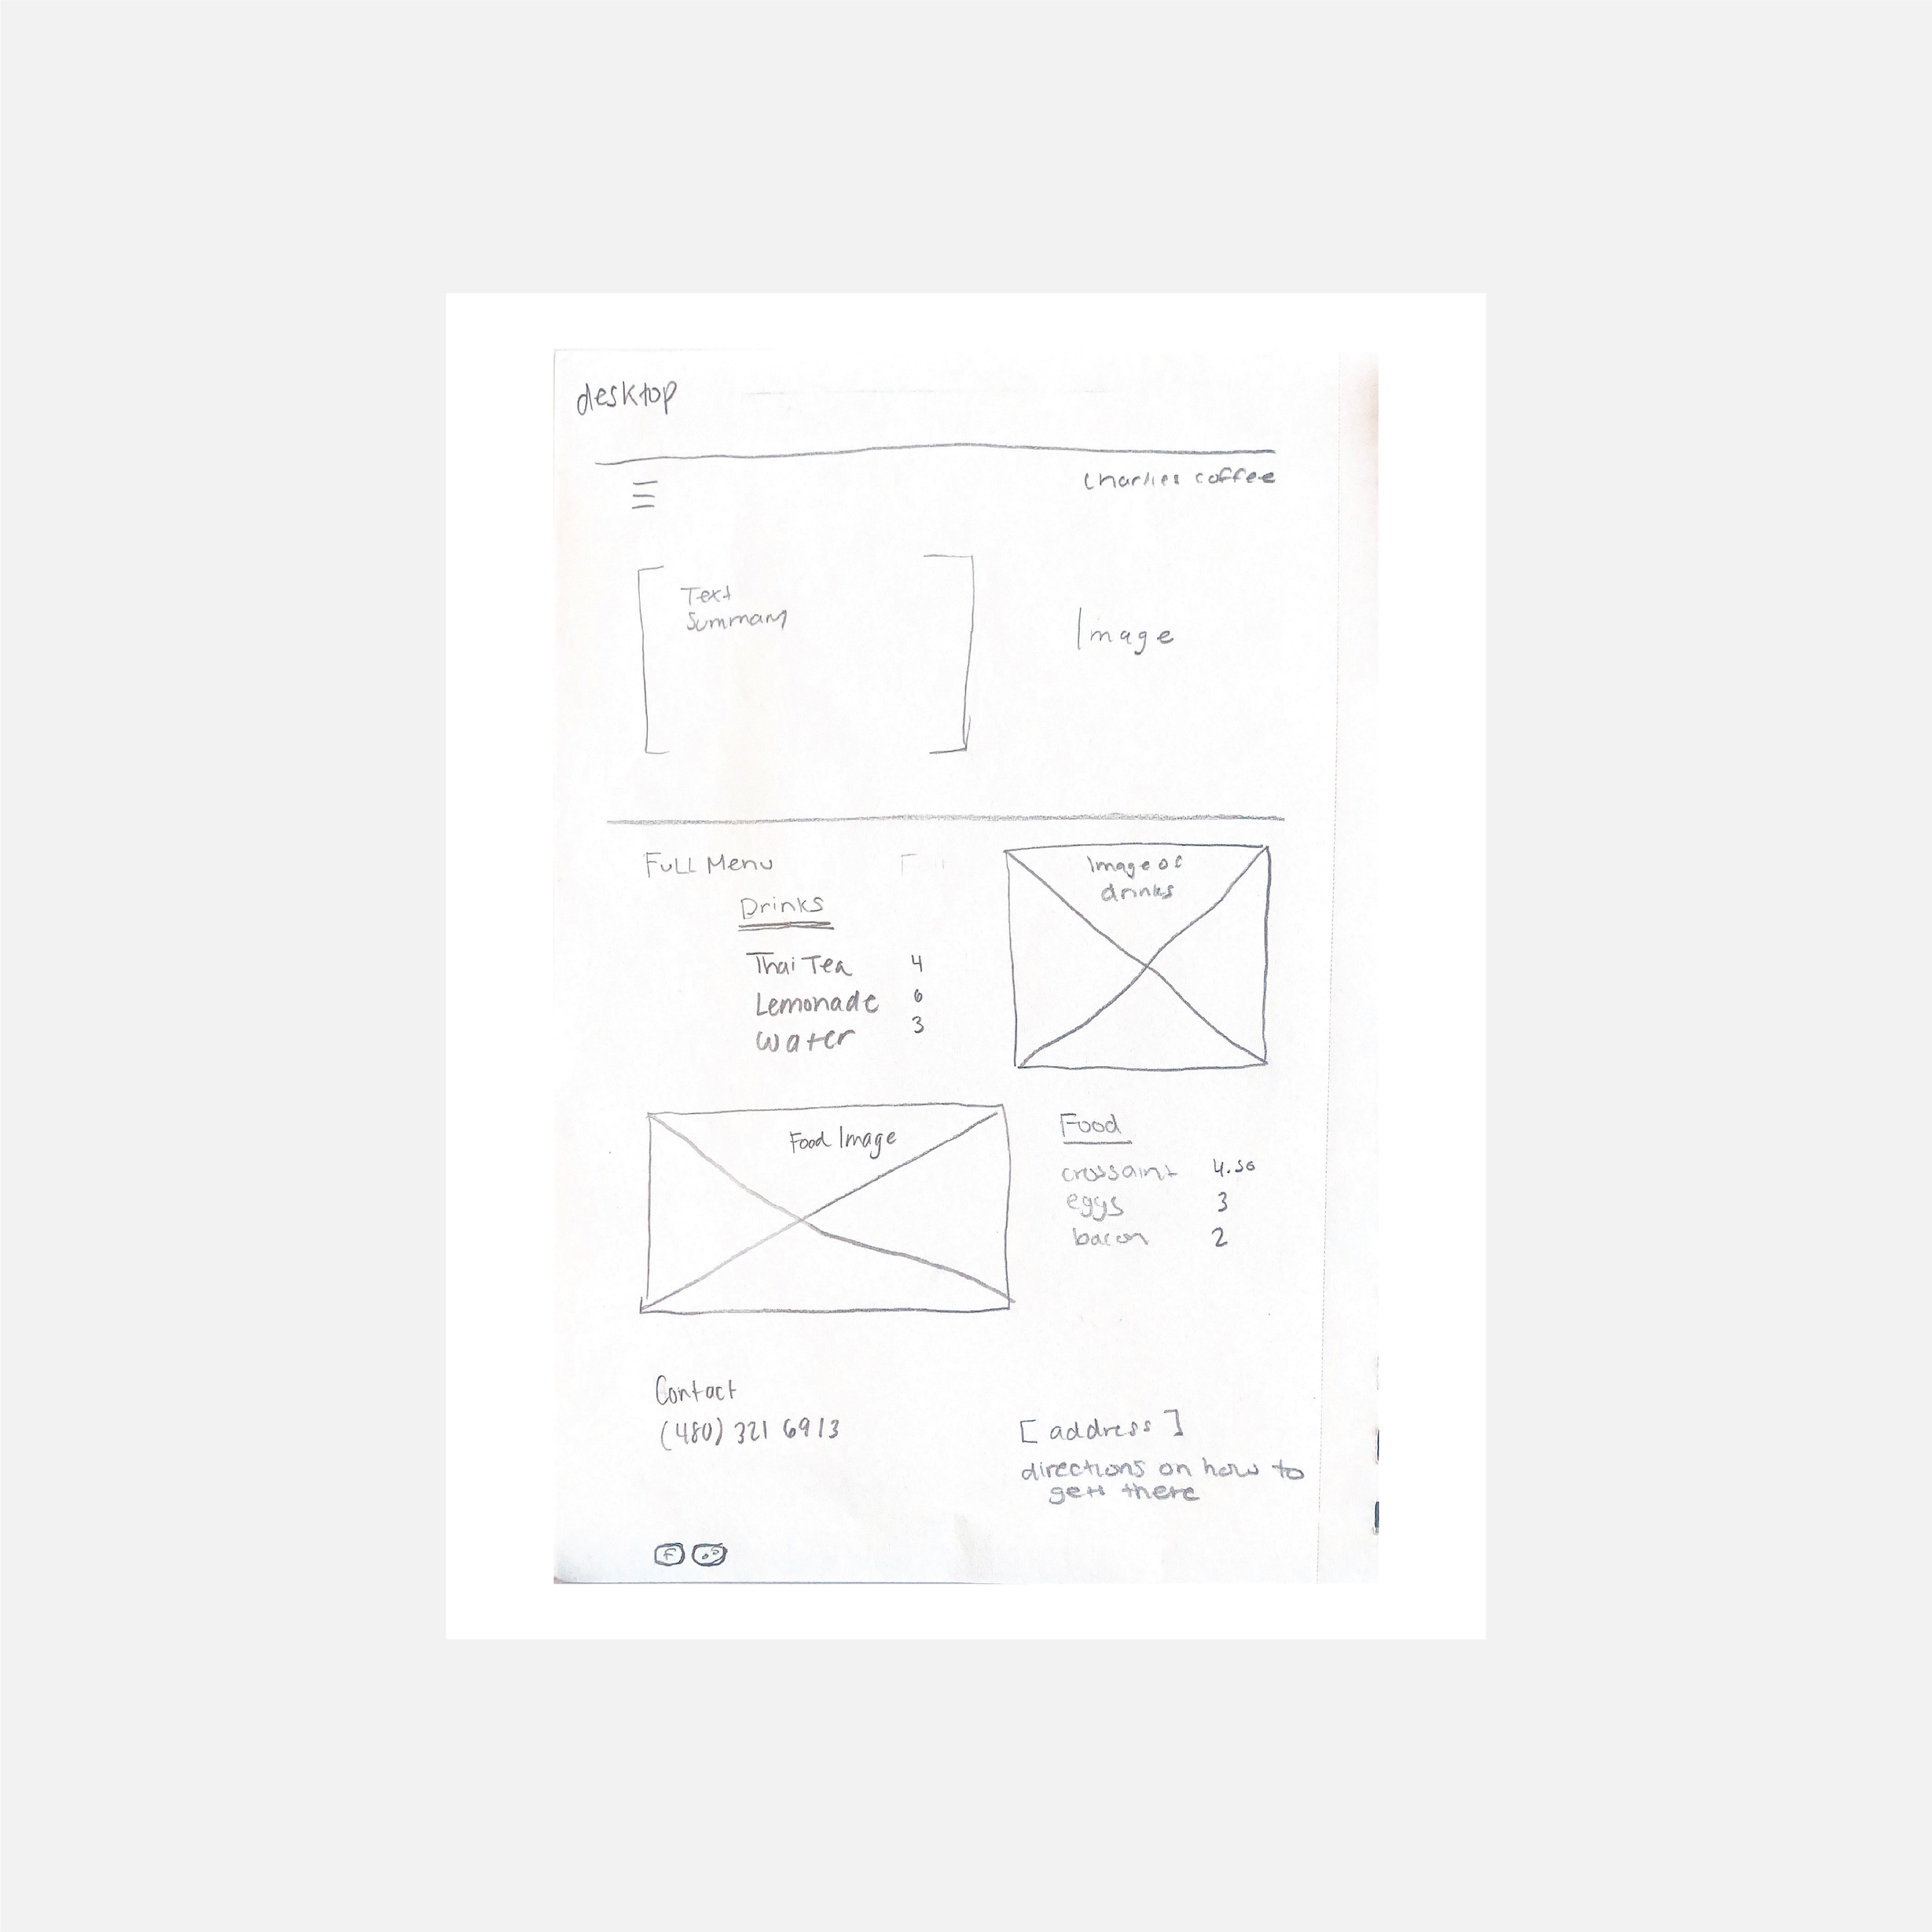 desktop
Charlies coffee
Text
Summary
Image
Full Menu
Image of
drinks
Drinks
Thai Tea 4
Lemonade 6
Water 3
Food Image
Food
crossaint 4.50
eggs 3
bacon 2
Contact
(480) 321 6913
[address]
directions on how to
gett there
F